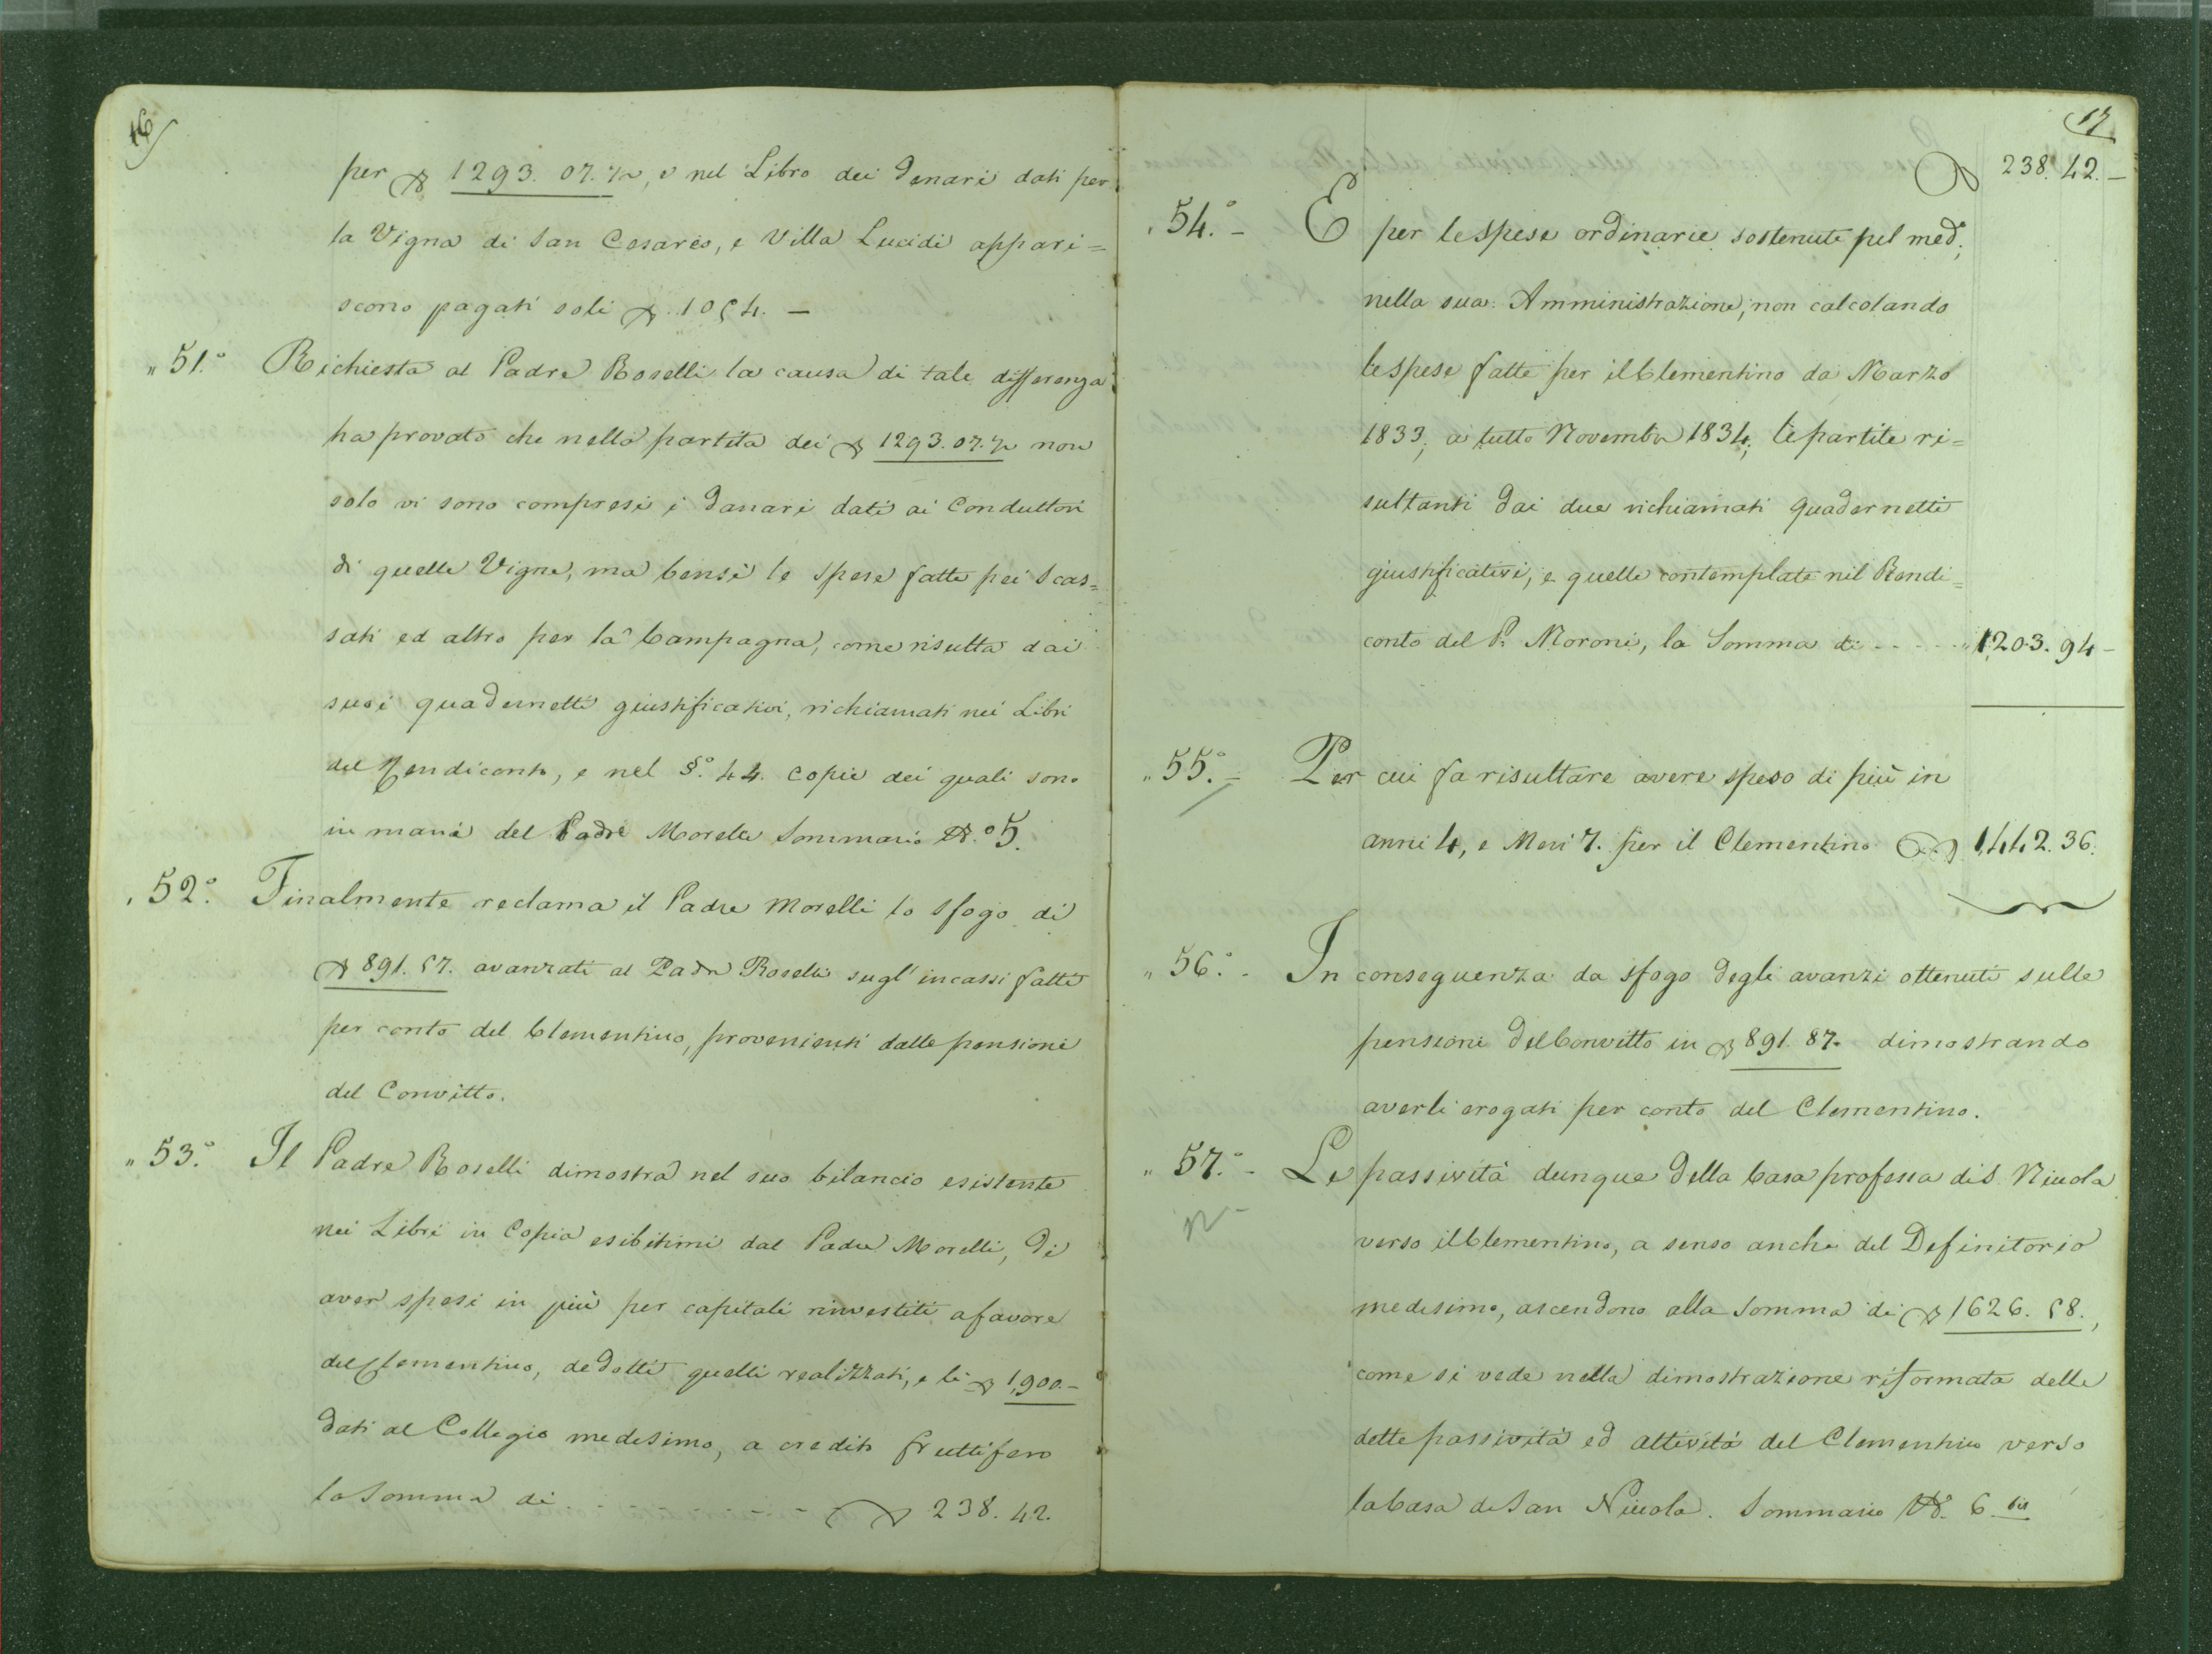 16
per ▽ 1293. 07. ½, e nel Libro dei Denari dati per
la Vigna di San Cesareo, e Villa Lucidi appari=
scono pagati soli ▽ 1054. —
" 51.° Richiesta al Padre Roselli la causa di tale differenza
ha provato che nella partita dei ▽ 1293. 07. ½ non
solo vi sono compresi i Danari dati ai Conduttori
di quelle Vigne, ma bensì le spese fatte pei Scas=
sati ed altro per la Campagna, come risulta dai
suoi quadernetti giustificativi, richiamati nei Libri
del Rendiconto, e nel §.° 44. copie dei quali sono
in mani del Padre Morelli Sommario N.° 5.
" 52.° Finalmente reclama il Padre Morelli lo sfogo di
▽ 891. 87. avanzati al Padre Roselli sugl' incassi fatti
per conto del Clementino, provenienti dalle pensioni
del Convitto.
" 53.° Il Padre Roselli dimostra nel suo bilancio esistente
nei Libri in Copia esibitimi dal Padre Morelli, di
aver spesi in più per capitali rinvestiti a favore
del Clementino, dedotti quelli realizzati, e li ▽ 1,900. —
dati al Collegio medesimo, a credito fruttifero
la Somma di . - - - - - - - ▽ 238. 42.
17
▽ 238. 42. —
" 54.° — E per le spese ordinarie sostenute pel med;
nella sua Amministrazione, non calcolando
le spese fatte per il Clementino da Marzo
1833, a tutto Novembre 1834, le partite ri=
sultanti dai due richiamati quadernetti
giustificativi, e quelle contemplate nel Rendi=
conto del P. Moroni, la Somma di - - - - " 1203. 94 —
" 55.° — Per cui fa risultare avere speso di più in
anni 4, e Mesi 7. per il Clementino ▽ 1,442. 36.
" 56.° - In conseguenza da sfogo degli avanzi ottenuti sulle
pensioni del Convitto in ▽ 891. 87. dimostrando
averli erogati per conto del Clementino.
" 57.° - Le passività dunque della Casa professa di S. Nicola
verso il Clementino, a senso anche del Definitorio
medesimo, ascendono alla Somma di ▽ 1626. 58.,
come si vede nella dimostrazione riformata delle
dette passività ed attività del Clementino verso
la Casa di San Nicola. Sommario N. 6. bis